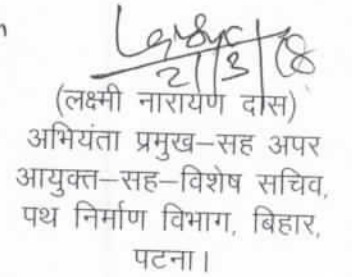 2/3/18
(लक्ष्मी नारायण दास)
अभियंता प्रमुख–सह अपर
आयुक्त–सह–विशेष सचिव,
पथ निर्माण विभाग, बिहार,
पटना।